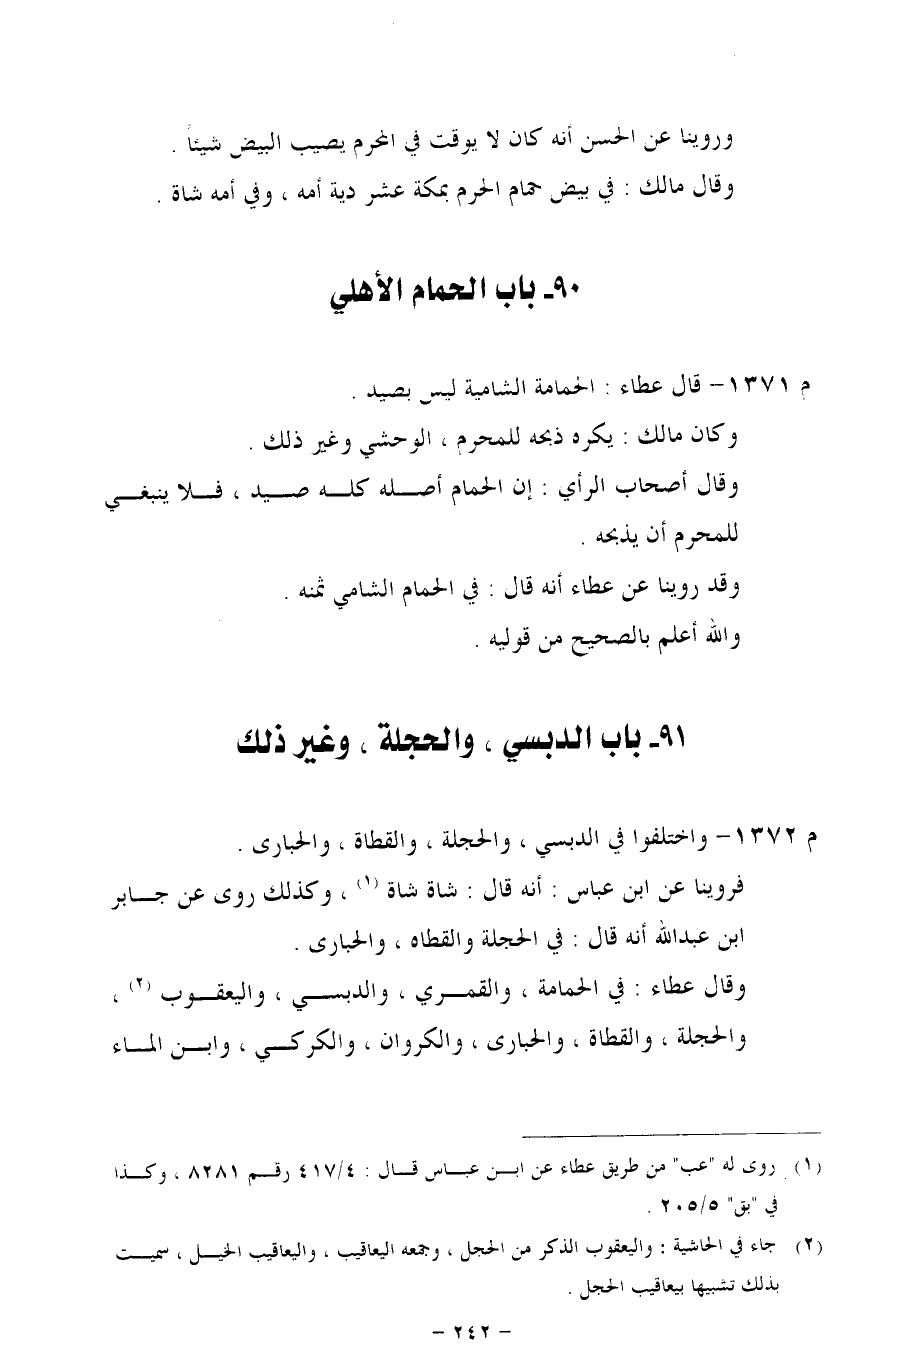 وروينا عن الحسن أنه كان لا يوقت في المحرم يصيب البيض شيئاً .
وقال مالك : في بيض حمام الحرم بمكة عشر دية أمه ، وفي أمه شاة .
٩٠ـ باب الحمام الأهلي
م ١٣٧١- قال عطاء : الحمامة الشامية ليس بصيد .
وكان مالك : يكره ذبحه للمحرم ، الوحشي وغير ذلك .
وقال أصحاب الرأي : إن الحمام أصله كله صيد ، فلا ينبغي
للمحرم أن يذبحه .
وقد روينا عن عطاء أنه قال : في الحمام الشامي ثمنه .
والله أعلم بالصحيح من قوليه .
٩١ـ باب الدبسي ، والحجلة ، وغير ذلك
م ١٣٧٢- واختلفوا في الدبسي ، والحجلة ، والقطاة ، والحبارى .
فروينا عن ابن عباس : أنه قال : شاة شاة (١) ، وكذلك روى عن جابر
ابن عبدالله أنه قال : في الحجلة والقطاه ، والحبارى .
وقال عطاء : في الحمامة ، والقمري ، والدبسي ، واليعقوب (٢) ،
والحجلة ، والقطاة ، والحبارى ، والكروان ، والكركي ، وابن الماء
(١) روى له "عب" من طريق عطاء عن ابن عباس قال : ٤١٧/٤ رقم ٨٢٨١ ، وكذا
في "بق" ٢٠٥/٥ .
(٢) جاء في الحاشية : واليعقوب الذكر من الحجل ، وجمعه اليعاقيب ، واليعاقيب الخيل ، سميت
بذلك تشبيها بيعاقيب الحجل .
- ٢٤٢ -